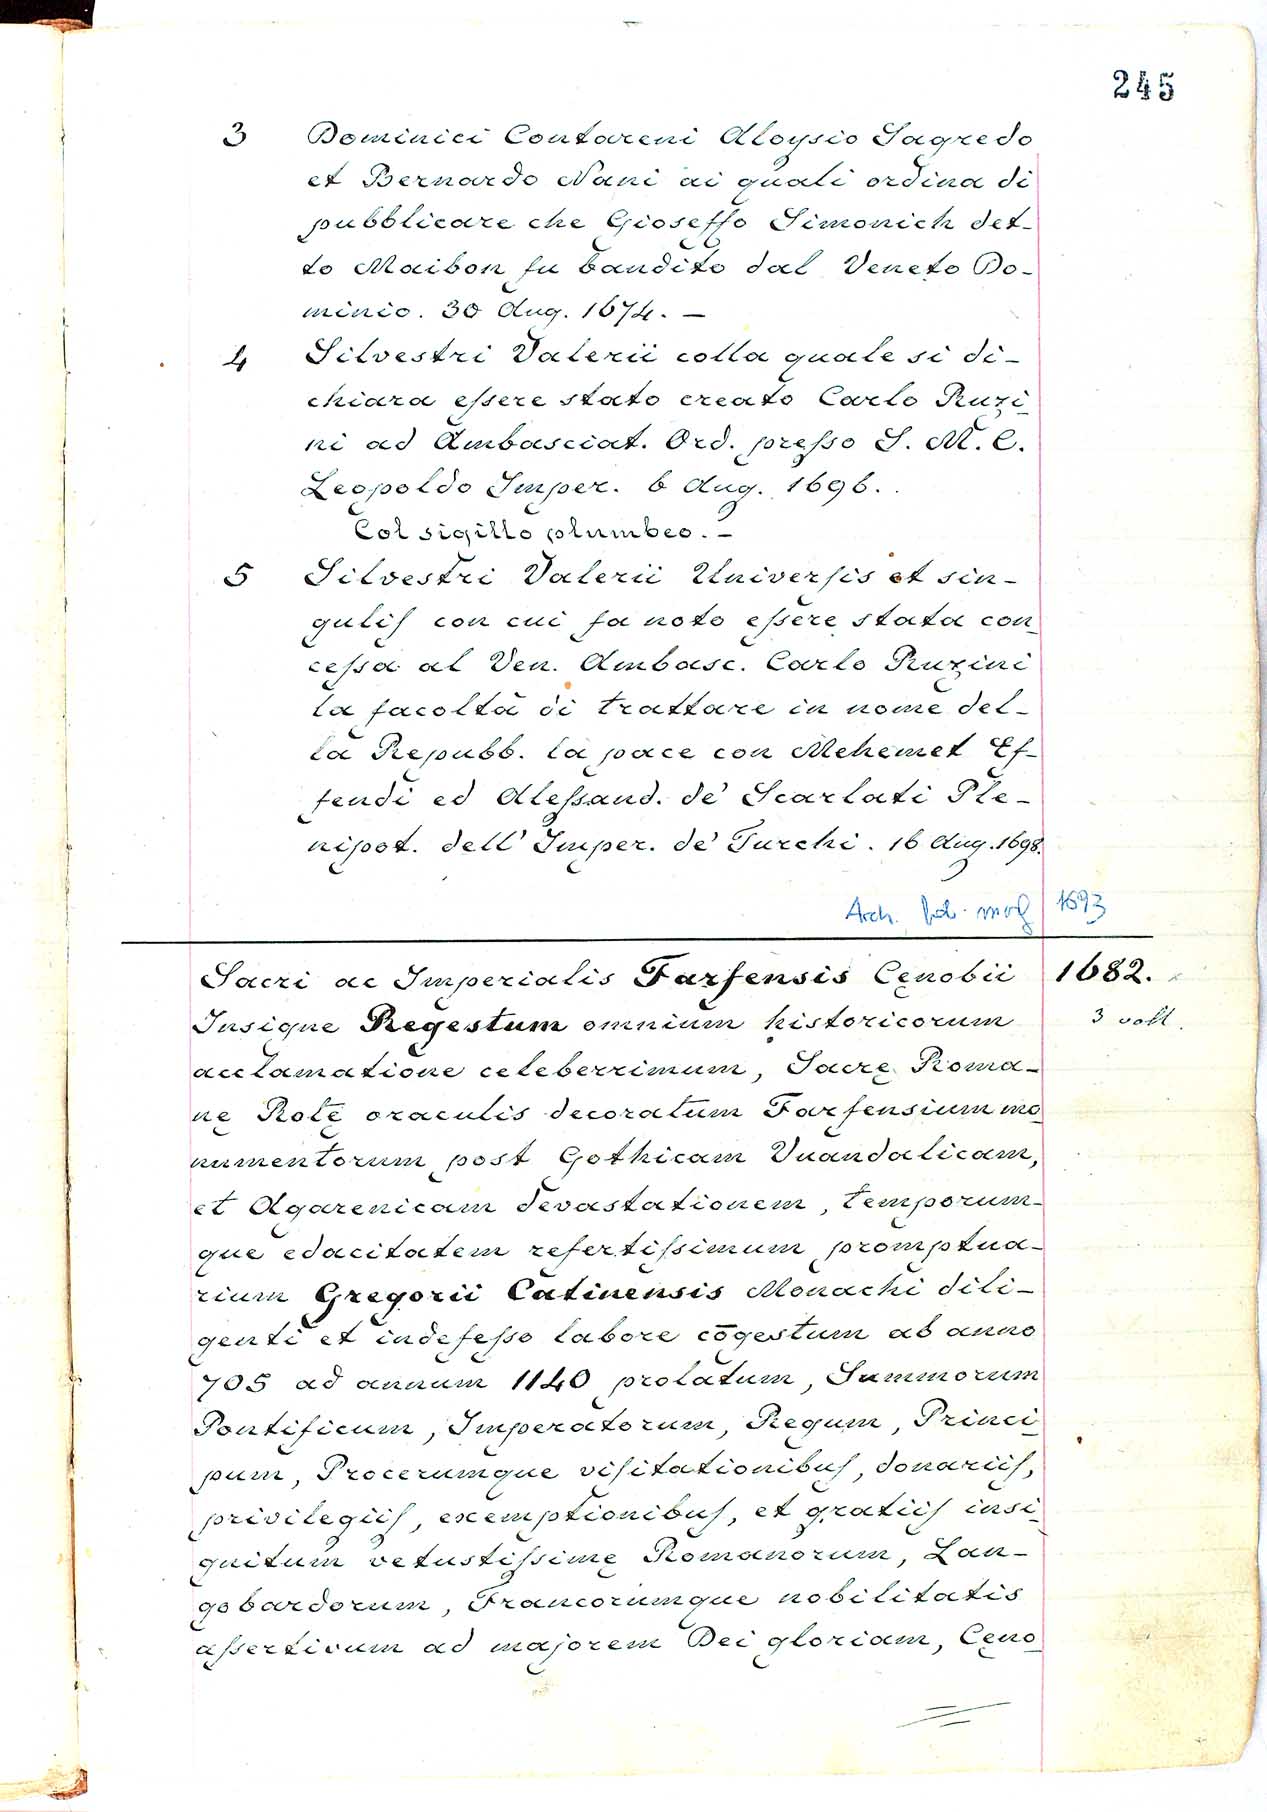 245
3 Dominici Contareni Aloysio Sagredo
et Bernardo Nani ai quali ordina di
pubblicare che Gioseffo Simonich det-
to Maibon fu bandito dal Veneto Do-
minio. 30 Aug. 1674. —
4 Silvestri Valerii colla quale si di-
chiara eſsere stato creato Carlo Ruzi-
ni ad Ambasciat. Ord. preſso S. M. C.
Leopoldo Imper. 6 Aug. 1696.
Col sigillo plumbeo. —
5 Silvestri Valerii Univerſis et sin-
guliſ con cui fa noto eſsere stata con-
ceſsa al Ven. Ambasc. Carlo Ruzini
la facoltà di trattare in nome del-
la Repubb. la pace con Mehemet Ef-
fendi ed Aleſsand. de' Scarlati Ple-
nipot. dell' Imper. de' Turchi. 16 Aug. 1698.
Arch. 1693
Sacri ac Imperialis Farfensis Cęnobii 1682.
Insigne Regestum omnium historicorum 3 voll.
acclamatione celeberrimum, Sacrę Roma-
nę Rotę oraculis decoratum Farfensium mo-
numentorum post Gothicam Vuandalicam,
et Agarenicam devastationem, temporum-
que edacitatem refertiſsimum promptua-
rium Gregorii Catinensis Monachi dili-
genti et indefeſso labore cōgestum ab anno
705 ad annum 1140 prolatum, Summorum
Pontificum, Imperatorum, Regum, Princi-
pum, Procerumque viſitationibuſ, donariiſ,
privilegiiſ, exemptionibuſ, et gratiiſ insi-
gnitum vetustiſsimę Romanorum, Lan-
gobardorum, Francorumque nobilitatis
aſsertivum ad majorem Dei gloriam, Cęno-